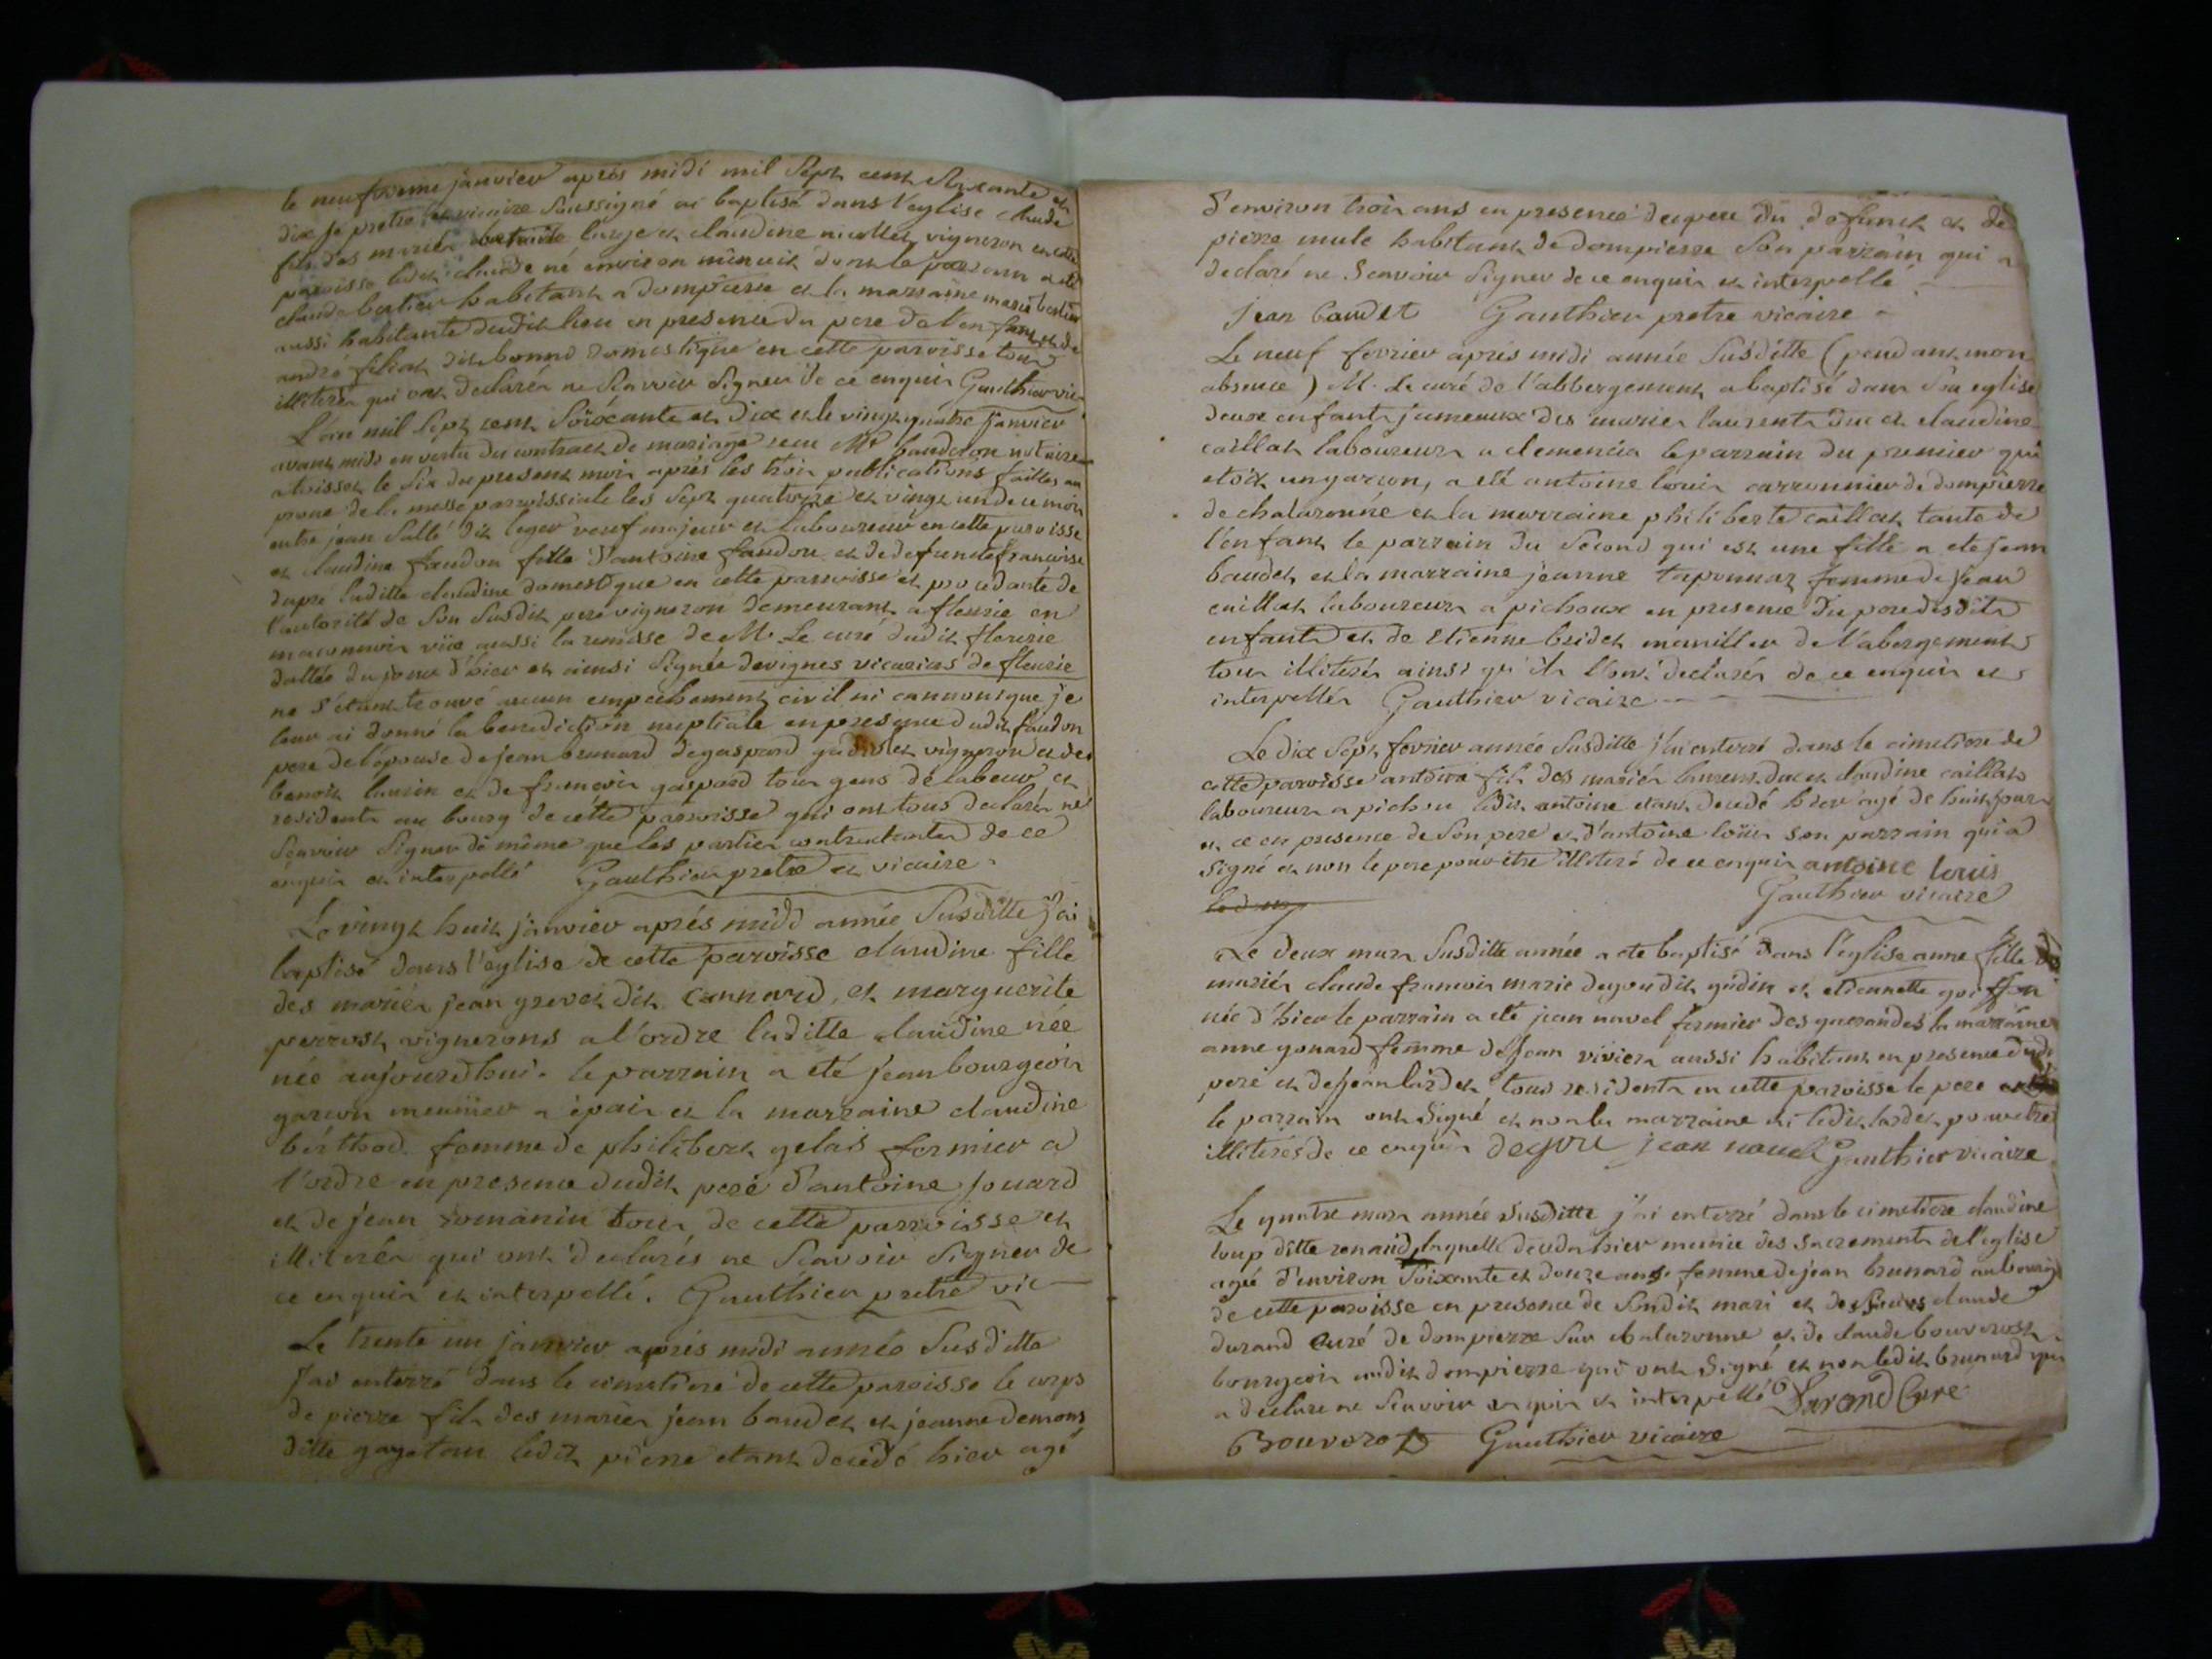 le neufvieme janvier après midi mil sept cent soixante et
dix je pretre et vicaire soussigné ai baptisé dans l'eglise claude
fils des mariés et claudine nicollet vigneron en cette
paroisse ledit claude né environ minuit dont le parrain a été
claude bertier habitant a dompierre et la marraine marie bertier
aussi habitante dudit lieu en presence du pere de l'enfant et de
andré filiat dit bonno domestique en cette paroisse tous
illiterés qui ont declarés ne sçavoir signer de ce enquis Gauthier vic
L'an mil sept cent soixante et dix et le vingt quatre janvier
avant midi en vertu du contract de mariage reçu Me baudron notaire
a toissey le six du present mois après les trois publications faittes au
prone de la messe paroissiale les sept quatorze et vingt un de ce mois
entre jean sallé dit leger veuf majeur et laboureur en cette paroisse
et claudine faudon fille d'antoine faudon et de defuncte francoise
dupré laditte claudine domestique en cette parroisse et procedante de
l'autorité de son susdit pere vigneron demeurant a fleurie en
maconnois vüe aussi la remisse de Mr. Le curé dudit fleurie
dattée du jour d'hier et ainsi signée devignes vicarias de fleurie
ne s'étant trouvé aucun empechement civil ni cannonique je
leur ai donné la benediction nuptiale en presence dudit faudon
pere de l'epouse de jean brunard de gaspard vigneron et de
benoit et de francois gaspard tous gens de labeur et
residents au bourg de cette parroisse qui ont tous declarés ne
sçavoir signer de même que les parties contractantes de ce
enquis et interpellé Gauthier pretre et vicaire
Le vingt huit janvier après midi année susditte j'ai
baptisé dans l'eglise de cette paroisse claudine fille
des mariés jean grevet dit cannard, et marguerite
perrost vignerons a l'ordre laditte claudine née
née aujourdhui. le parrain a eté jean bourgeois
garcon meunier a epais et la marraine claudine
berthod femme de philibert gelas fermier a
l'ordre en presence dudit pere d'antoine jouard
et de jean romanin tous de cette parroisse et
illiterés qui ont declarés ne sçavoir signer de
ce enquis et interpellé. Gauthier pretre vic
Le trente un janvier après midi année susditte
J'ai enterré dans le cimetiere de cette paroisse le corps
de pierre fils des mariés jean baudet et jeanne demons
ditte gagetan ledit pierre etant decedé hier agé
d'environ trois ans en presence du pere du defunct et de
pierre mule habitant de dompierre son parrain qui a
declaré ne sçavoir signer de ce enquis et interpellé
jean baudet Gauthier pretre vicaire
Le neuf fevrier après midi année susditte (pendant mon
absence) M. Le curé de l'abbergement a baptisé dans son eglise
deux enfants jumeaux des mariés laurent duc et claudine
caillat laboureurs a clemencia le parrain du premier qui
etoit un garcon, a eté antoine louis carronnier de dompierre
de chalaronne et la marraine philiberte caillat tante de
l'enfant le parrain du second qui est une fille a ete jean
baudet et la marraine jeanne taponnaz femme de jean
caillat laboureurs a pichoux en presence du pere desdits
enfants et de Etienne bridet manillier de l'abergement
tous illiterés ainsi qu'ils l'ont declarés de ce enquis et
interpellés Gauthier vicaire
Le dix sept fevrier année susditte j'ai enterré dans le cimetiere de
cette paroisse antoine fils des mariés laurent duc et claudine caillat
laboureurs a pichou ledit antoine etant decedé hier agé de huit jours
et ce en presence de son pere et d'antoine loüis son parrain qui a
signé et non le pere pour etre illiteré de ce enquis antoine louis
Gauthier vicaire
Le deux mars susditte année a ete baptisé dans l'église anne fille des
mariés claude francois marie degou dit gudin et etiennette goiffon
née d'hier le parrain a eté jean navel fermier des guerandes la marraine
anne gonard femme de jean viviers aussi habitant en presence dudit
pere et de jean lardet tous residents en cette paroisse le pere et
le parrain ont signé et non la marraine ni ledit lardet pour etre
illiterés de ce enquis degou jean navel Gauthier vicaire
Le quatre mars année susditte j'ai enterré dans le cimetiere claudine
loup ditte renaud laquelle deceda hier munie des sacrements de l'eglise
agée d'environ soixante et douze ans femme de jean brunard au bourg
de cette paroisse en presence de sondit mari et des sieurs claude
durand curé de dompierre sur chalaronne et de claude bouverost
bourgeois audit dompierre qui ont signé et non ledit brunard qui
a declare ne sçavoir enquis et interpellé Durand Curé
Bouverot Gauthier vicaire